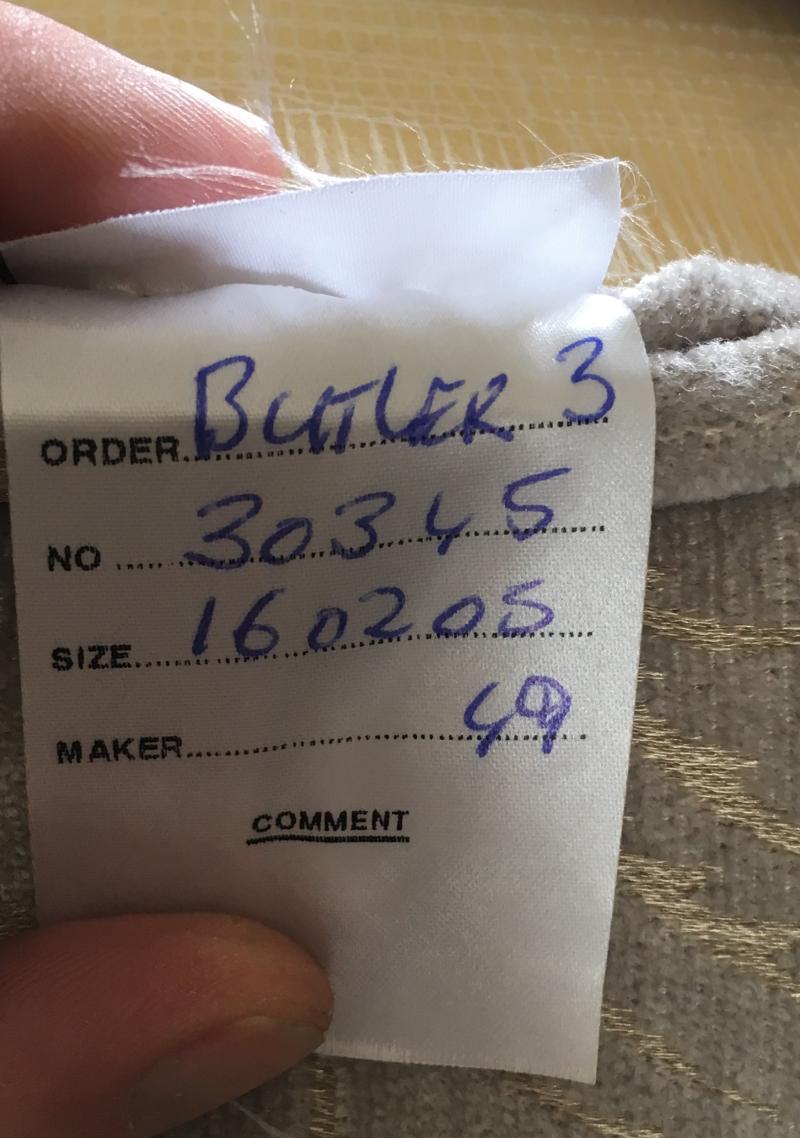 ORDER BUTLER 3
NO 30345
SIZE 160205
MAKER 49
COMMENT